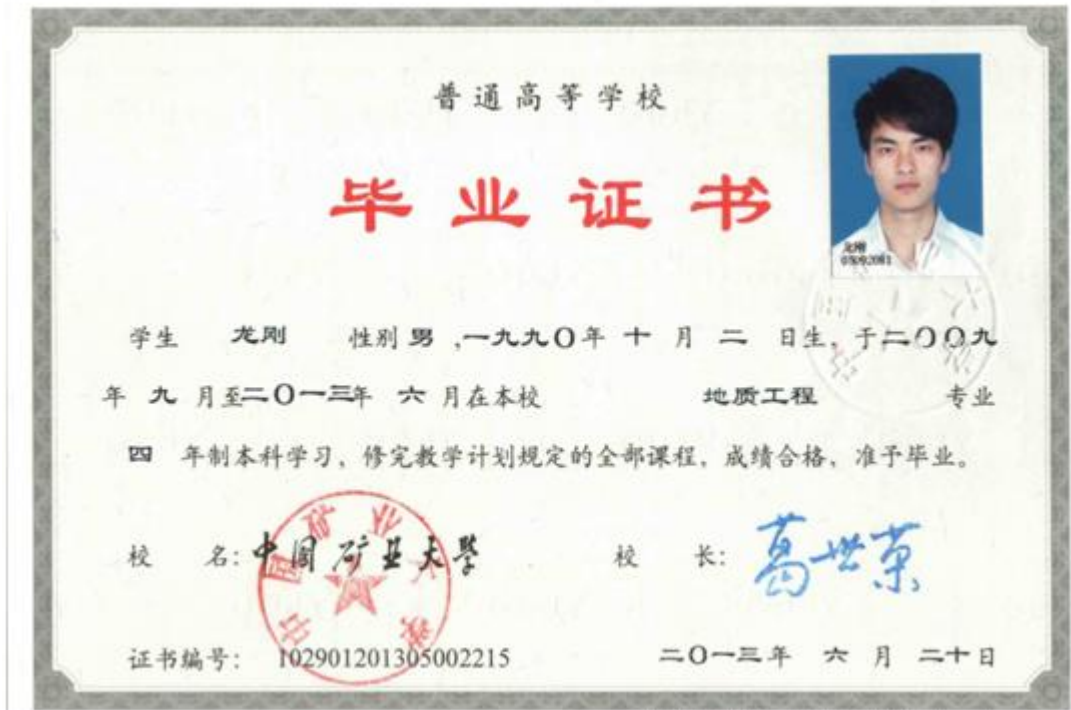 普通高等学校
毕业证书
龙刚
05092081
学生 龙刚 性别 男 ,一九九〇年 十 月 二 日生，于二〇〇九
年 九 月至二〇一三年 六 月在本校 地质工程 专业
四 年制本科学习，修完教学计划规定的全部课程，成绩合格，准予毕业。
校 名: 中国矿业大学 校 长: 葛世荣
中国矿业大学
证书编号: 102901201305002215 二〇一三年 六 月 二十日